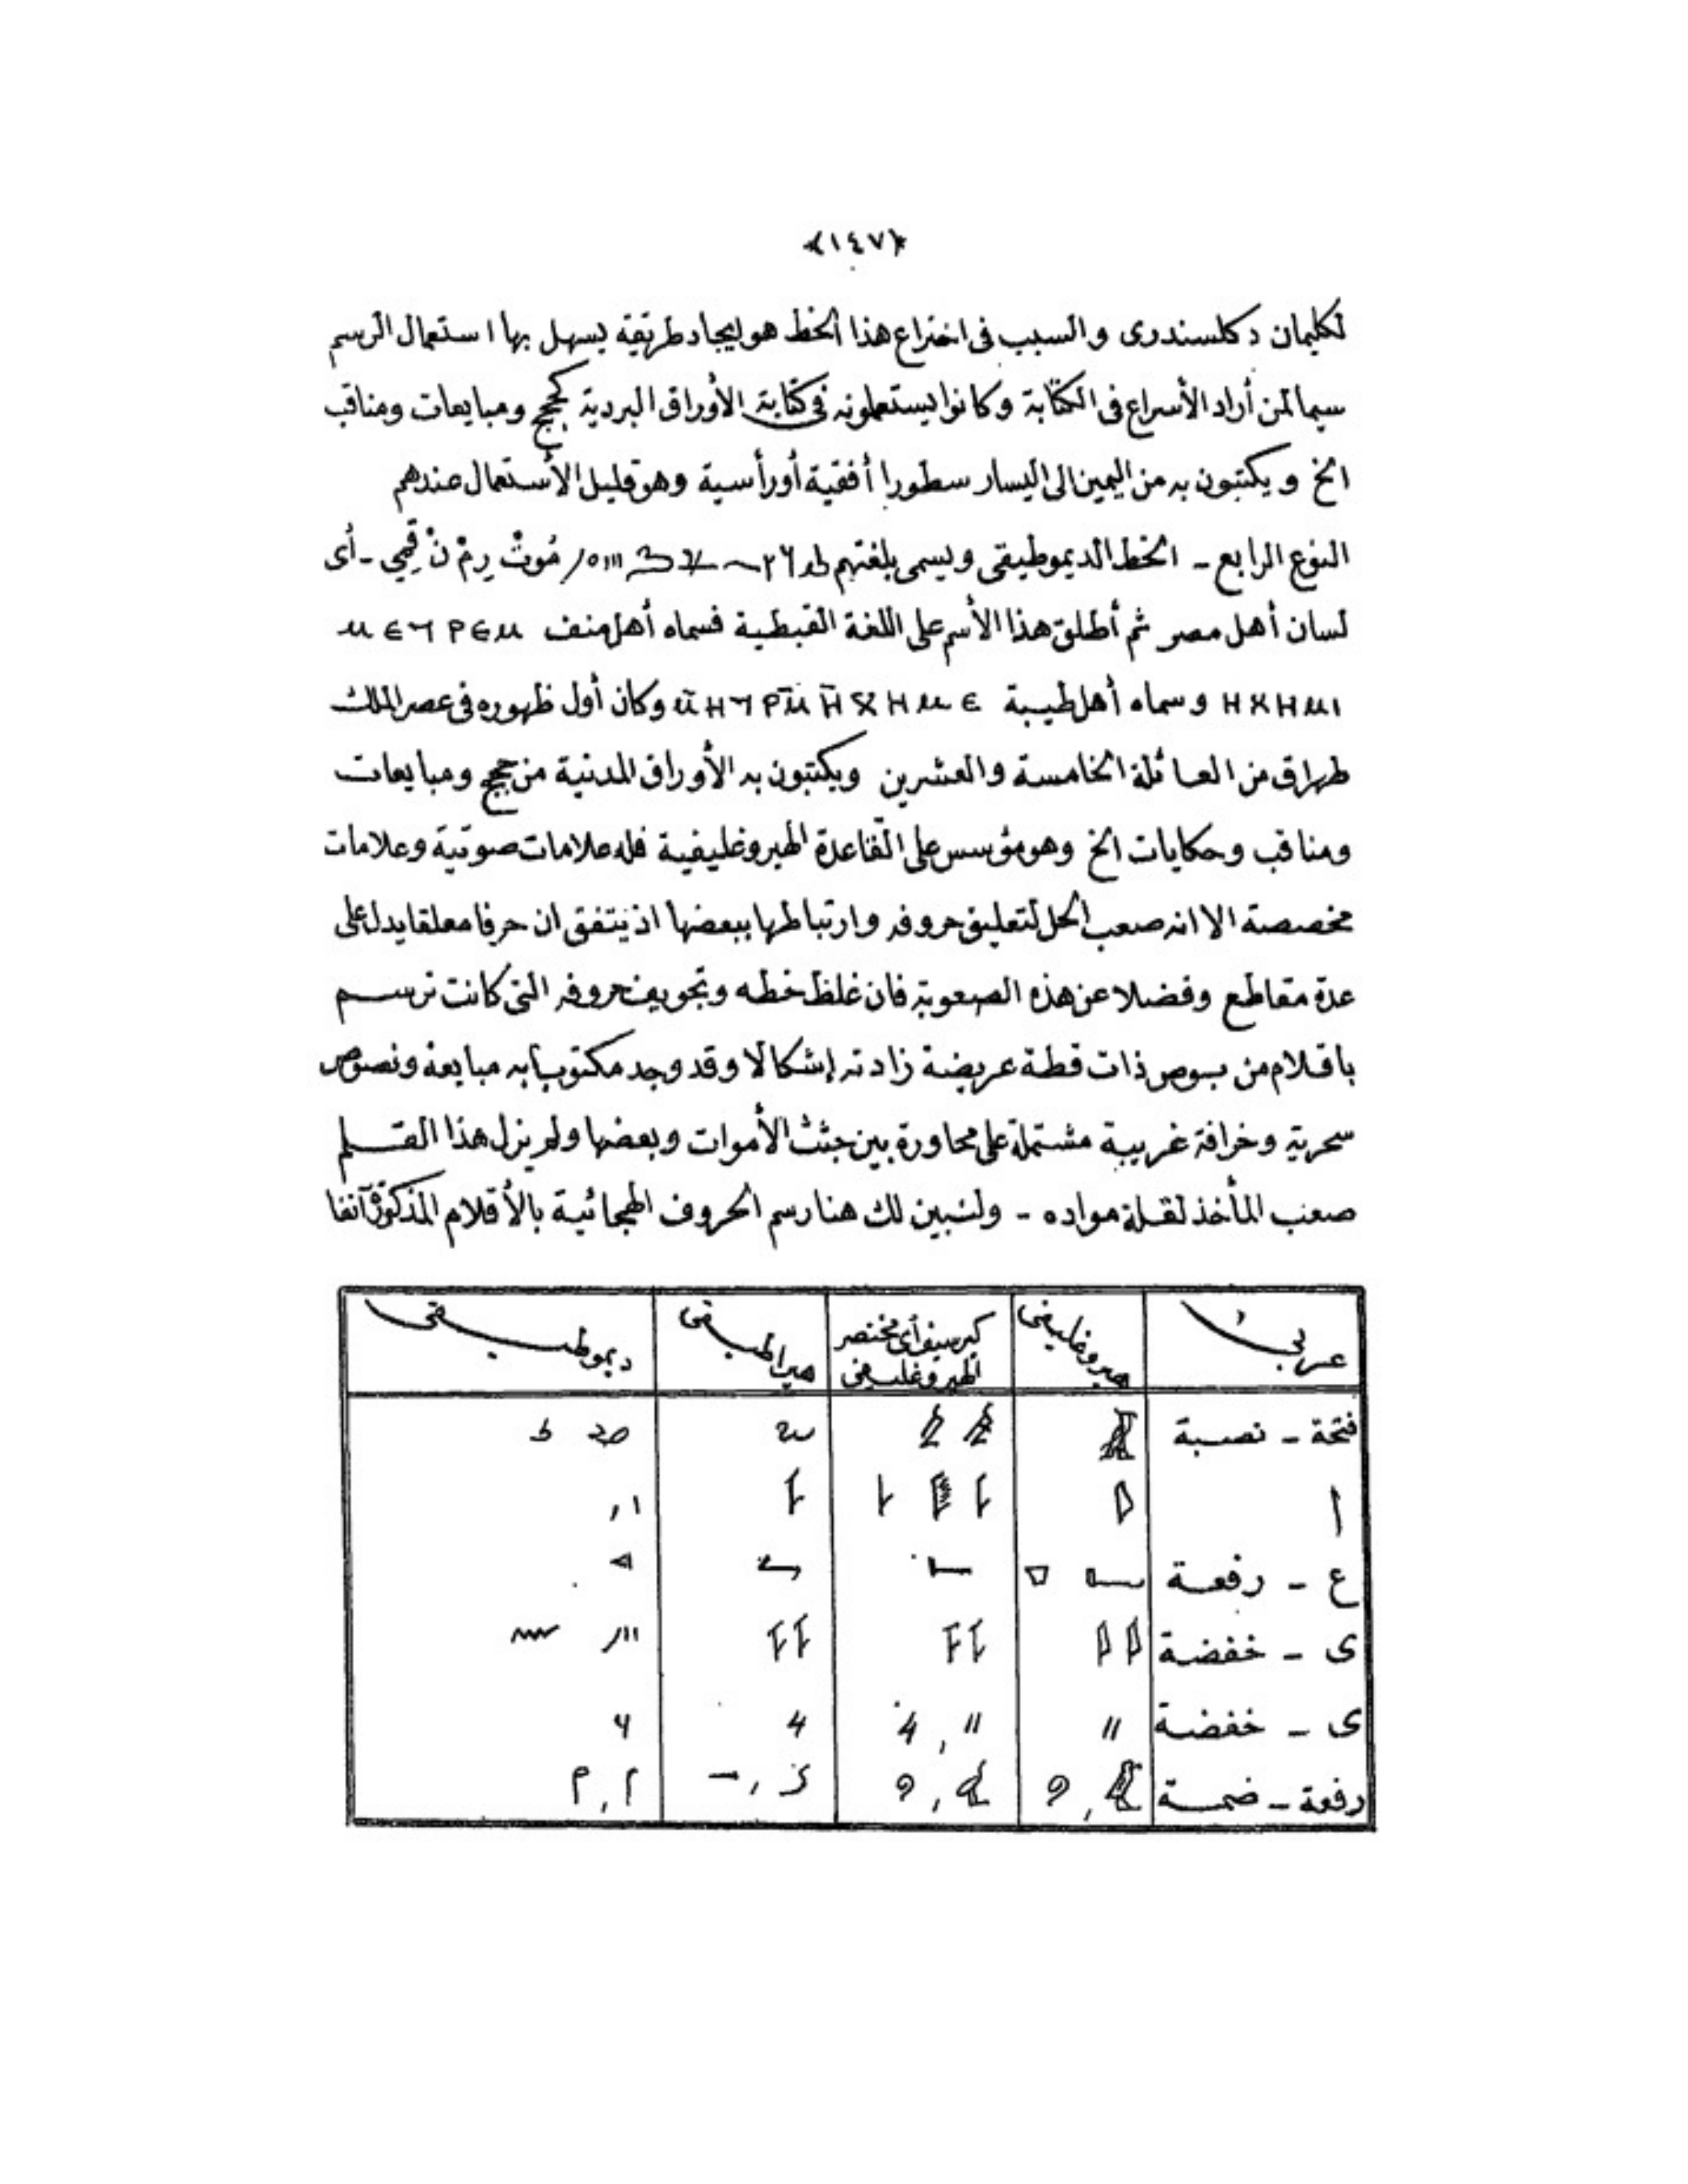 ﴿١٤٧﴾
لكليمان دكلسندرى والسبب فى اختراع هذا الخط هو ايجاد طريقة يسهل بها استعمال الرسم
سيما لمن أراد الأسراع فى الكتابة وكانوا يستعملونه فى كتابة الأوراق البردية كحجج ومبايعات ومناقب
الخ ويكتبون به من اليمين الى اليسار سطورا أفقية أو رأسية وهو قليل الأستعمال عندهم
النوع الرابع - الخط الديموطيقى ويسمى بلغتهم مُوتْ رِمْ نْ قِمِى - أى
لسان أهل مصر ثم أطلق هذا الأسم على اللغة القبطية فسماه أهل منف
وسماه أهل طيبة وكان أول ظهوره فى عصر الملك
طهراق من العائلة الخامسة والعشرين ويكتبون به الأوراق المدنية من حجج ومبايعات
ومناقب وحكايات الخ وهو مؤسس على القاعدة الهيروغليفية فله علامات صوتية وعلامات
مخصصة الا انه صعب الحل لتعليق حروفه وارتباطها ببعضها اذ يتفق ان حرفا معلقا يدل على
عدة مقاطع وفضلا عن هذه الصعوبة فان غلظ خطه وتجويف حروفه التى كانت ترسم
باقلام من بوص ذات قطة عريضة زادته إشكالا وقد وجد مكتوبا به مبايعة ونصوص
سحرية وخرافة غريبة مشتملة على محاورة بين جثث الأموات وبعضها ولم يزل هذا القلم
صعب المأخذ لقلة مواده - ولنبين لك هنا رسم الحروف الهجائية بالأقلام المذكورة آنفا
عربى هيروغليفى كيرسيف أى مختصر الهيروغليفى هيراطيقى ديموطيقى
فتحة - نصبة
ا
ع - رفعة
ى - خفضة
ى - خفضة
رفعة - ضمة